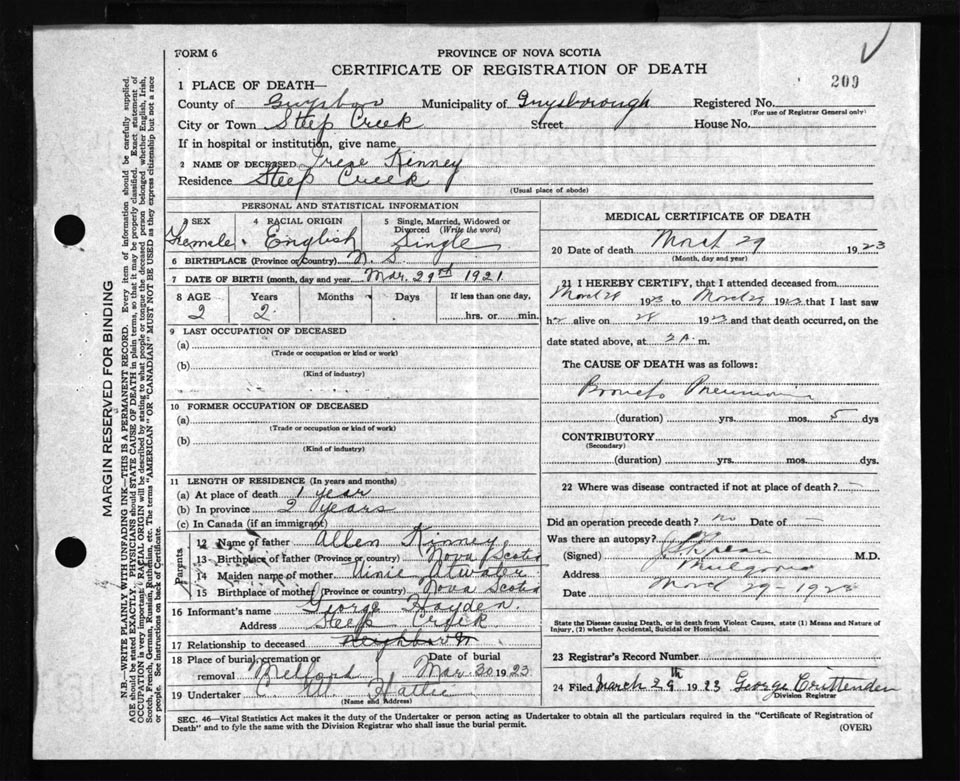 FORM 6
PROVINCE OF NOVA SCOTIA
CERTIFICATE OF REGISTRATION OF DEATH
209
1 PLACE OF DEATH—
County of Municipality of Guysborough Registered No.
(For use of Registrar General only)
City or Town Steep Creek Street House No.
If in hospital or institution, give name
2 NAME OF DECEASED Irene Kinney
Residence Steep Creek
(Usual place of abode)
PERSONAL AND STATISTICAL INFORMATION
3 SEX 4 RACIAL ORIGIN 5 Single, Married, Widowed or Divorced (Write the word)
Femele English Single
6 BIRTHPLACE (Province or Country) N. S.
7 DATE OF BIRTH (month, day and year) Mar. 29th 1921
8 AGE Years Months Days If less than one day
2 2 hrs. or min.
9 LAST OCCUPATION OF DECEASED
(a)
(Trade or occupation or kind or work)
(b)
(Kind of industry)
10 FORMER OCCUPATION OF DECEASED
(a)
(Trade or occupation or kind of work)
(b)
(Kind of industry)
11 LENGTH OF RESIDENCE (In years and months)
(a) At place of death 1 year
(b) In province 2 years
(c) In Canada (if an immigrant)
Parents
12 Name of father Allen Kinney
13 Birthplace of father (Province or country) Nova Scotia
14 Maiden name of mother Atwater
15 Birthplace of mother (Province or country) Nova Scotia
16 Informant's name George Hayden
Address Steep Creek
17 Relationship to deceased neighbour
18 Place of burial, cremation or removal Melford Date of burial Mar. 30 1923
19 Undertaker
(Name and Address)
MEDICAL CERTIFICATE OF DEATH
20 Date of death March 29 1923
(Month, day and year)
21 I HEREBY CERTIFY, that I attended deceased from
March 1923 to March 1923 that I last saw
her alive on 28 1923 and that death occurred, on the
date stated above, at 2 A. m.
The CAUSE OF DEATH was as follows:
Broncho Pneumonia
(duration) yrs. mos. 5 dys
CONTRIBUTORY
(Secondary)
(duration) yrs. mos. dys.
22 Where was disease contracted if not at place of death?
Did an operation precede death? no Date of
Was there an autopsy?
(Signed) M.D.
Address Mulgrave
Date March 29 - 1923
State the Disease causing Death, or in death from Violent Causes, state (1) Means and Nature of
Injury, (2) whether Accidental, Suicidal or Homicidal.
23 Registrar's Record Number
24 Filed March 29th 1923 George Crittenden
Division Registrar
SEC. 46—Vital Statistics Act makes it the duty of the Undertaker or person acting as Undertaker to obtain all the particulars required in the "Certificate of Registration of
Death" and to fyle the same with the Division Registrar who shall issue the burial permit.
(OVER)
MARGIN RESERVED FOR BINDING
N.B—WRITE PLAINLY WITH UNFADING INK—THIS IS A PERMANENT RECORD. Every item of information should be carefully supplied.
AGE should be stated EXACTLY. PHYSICIANS should STATE CAUSE OF DEATH in plain terms, so that it may be properly classified. Exact statement of
OCCUPATION is very important. RACIAL ORIGIN will be described by stating to what people or tongue the deceased person belonged whether English, Irish,
Scotch, French, German, Russian, Ruthenian, etc. The terms "AMERICAN" OR "CANADIAN" MUST NOT BE USED as they express citizenship but not a race
or people. See instructions on back of Certificate.